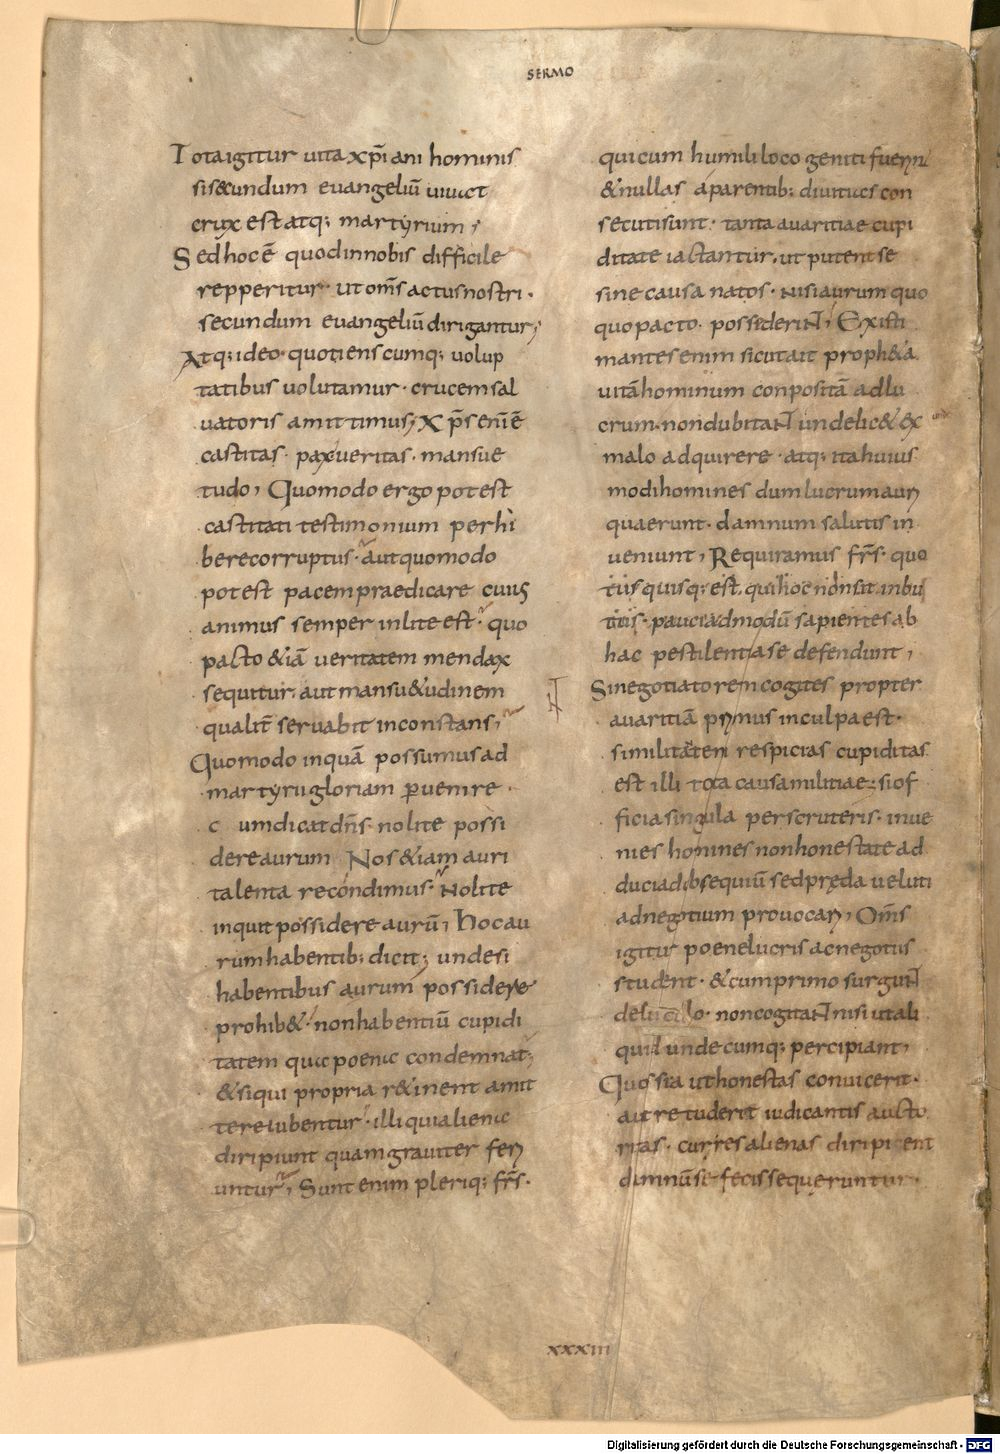 SERMO
Tota igitur uita xp̄iani hominis
si secundum euangeliū uiuat
crux est atq; martyrium;
Sed hoc ē quod in nobis difficile
repperitur ut om̄s actus nostri.
secundum euangeliū dirigantur;
Atq; ideo quotienscumq; uolup
tatibus uolutamur. crucem sal
uatoris amittimus; Xp̄s enī ē
castitas. pax ueritas. mansue
tudo; Quomodo ergo potest
castitati testimonium perhi
bere corruptus. aut quomodo
potest pacem praedicare cuius
animus semper in lite est. quo
pacto &iā ueritatem mendax
sequitur. aut mansu&udinem
qualit̄ seruabit inconstans;
Quomodo inquā possumus ad
martyrii gloriam ꝑuenire.
cum dicat dn̄s. nolite possi
dere aurum Nos &iam auri
talenta recondimus. Nolite
inquit possidere aurū; Hoc au
rum habentib; dicit; unde si
habentibus aurum possidere
prohib&. non habentiū cupidi
tatem quae poena condemnat;
& si qui propria r&inent amit
tere iubentur. illi qui aliena
diripiunt quam grauiter feri
untur; Sunt enim pleriq; fr̄s.
qui cum humili loco geniti fuerint
& nullas a parentib; diuitias con
secuti sunt. tanta auaritiae cupi
ditate iactantur. ut putent se
sine causa natos. nisi aurum quo
quo pacto. possiderint; Existi
mantes enim sicut ait proph&a.
uitā hominum conpositā ad lu
crum. non dubitant undelic& ex
malo adquirere. atq; ita huius
modi homines dum lucrum auri
quaerunt. damnum salutis in
ueniunt; Requiramus fr̄s. quo
tus quisq; est. qui hoc non sit inbu
tus. pauci admodū sapientes ab
hac pestilentia se defendunt;
Si negotiatorem cogites propter
auaritiā primus in culpa est.
si militatem respicias cupiditas
est illi tota causa militiae; si of
ficia singula perscruteris. inue
nies homines non honestate ad
duci ad obsequiū sed pręda ueluti
ad negotium prouocari; Om̄s
igitur poene lucris ac negotiis
student. & cum primo surgunt
diluculo. non cogitant nisi ut ali
quid undecumq; percipiant;
Quos si aut honestas conuicerit.
aut retuderit iudicantis aucto
ritas. cur res alienas diripiant
damnū se fecisse queruntur.
XXXIII
Digitalisierung gefördert durch die Deutsche Forschungsgemeinschaft - DFG